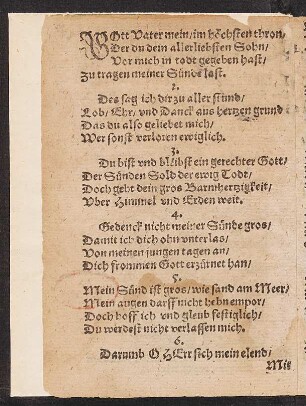 GOtt Vater mein/im höchsten thron/
Der du dein allerliebsten Sohn/
Vor mich in todt gegeben hast/
Zu tragen meiner Sünde last.
2.
Des sag ich dir zu aller stund/
Lob/ Ehr/ vnd Danck aus hertzen grund
Das du also geliebet mich/
Wer sonst verloren ewiglich.
3.
Du bist vnd bleibst ein gerechter Gott/
Der Sünden Sold der ewig Todt/
Doch geht dein gros Barmhertzigkeit/
Vber Himmel vnd Erden weit.
4.
Gedenck nicht meiner Sünde gros/
Damit ich dich ohn vnterlas/
Von meinen jungen tagen an/
Dich frommen Gott erzürnet han/
5.
Mein Sünd ist gros/ wie sand am Meer/
Mein augen darff nicht hebn empor/
Doch hoff ich vnd gleub festiglich/
Du werdest nicht verlassen mich.
6.
Darumb O HErr sich mein elend/
Mit